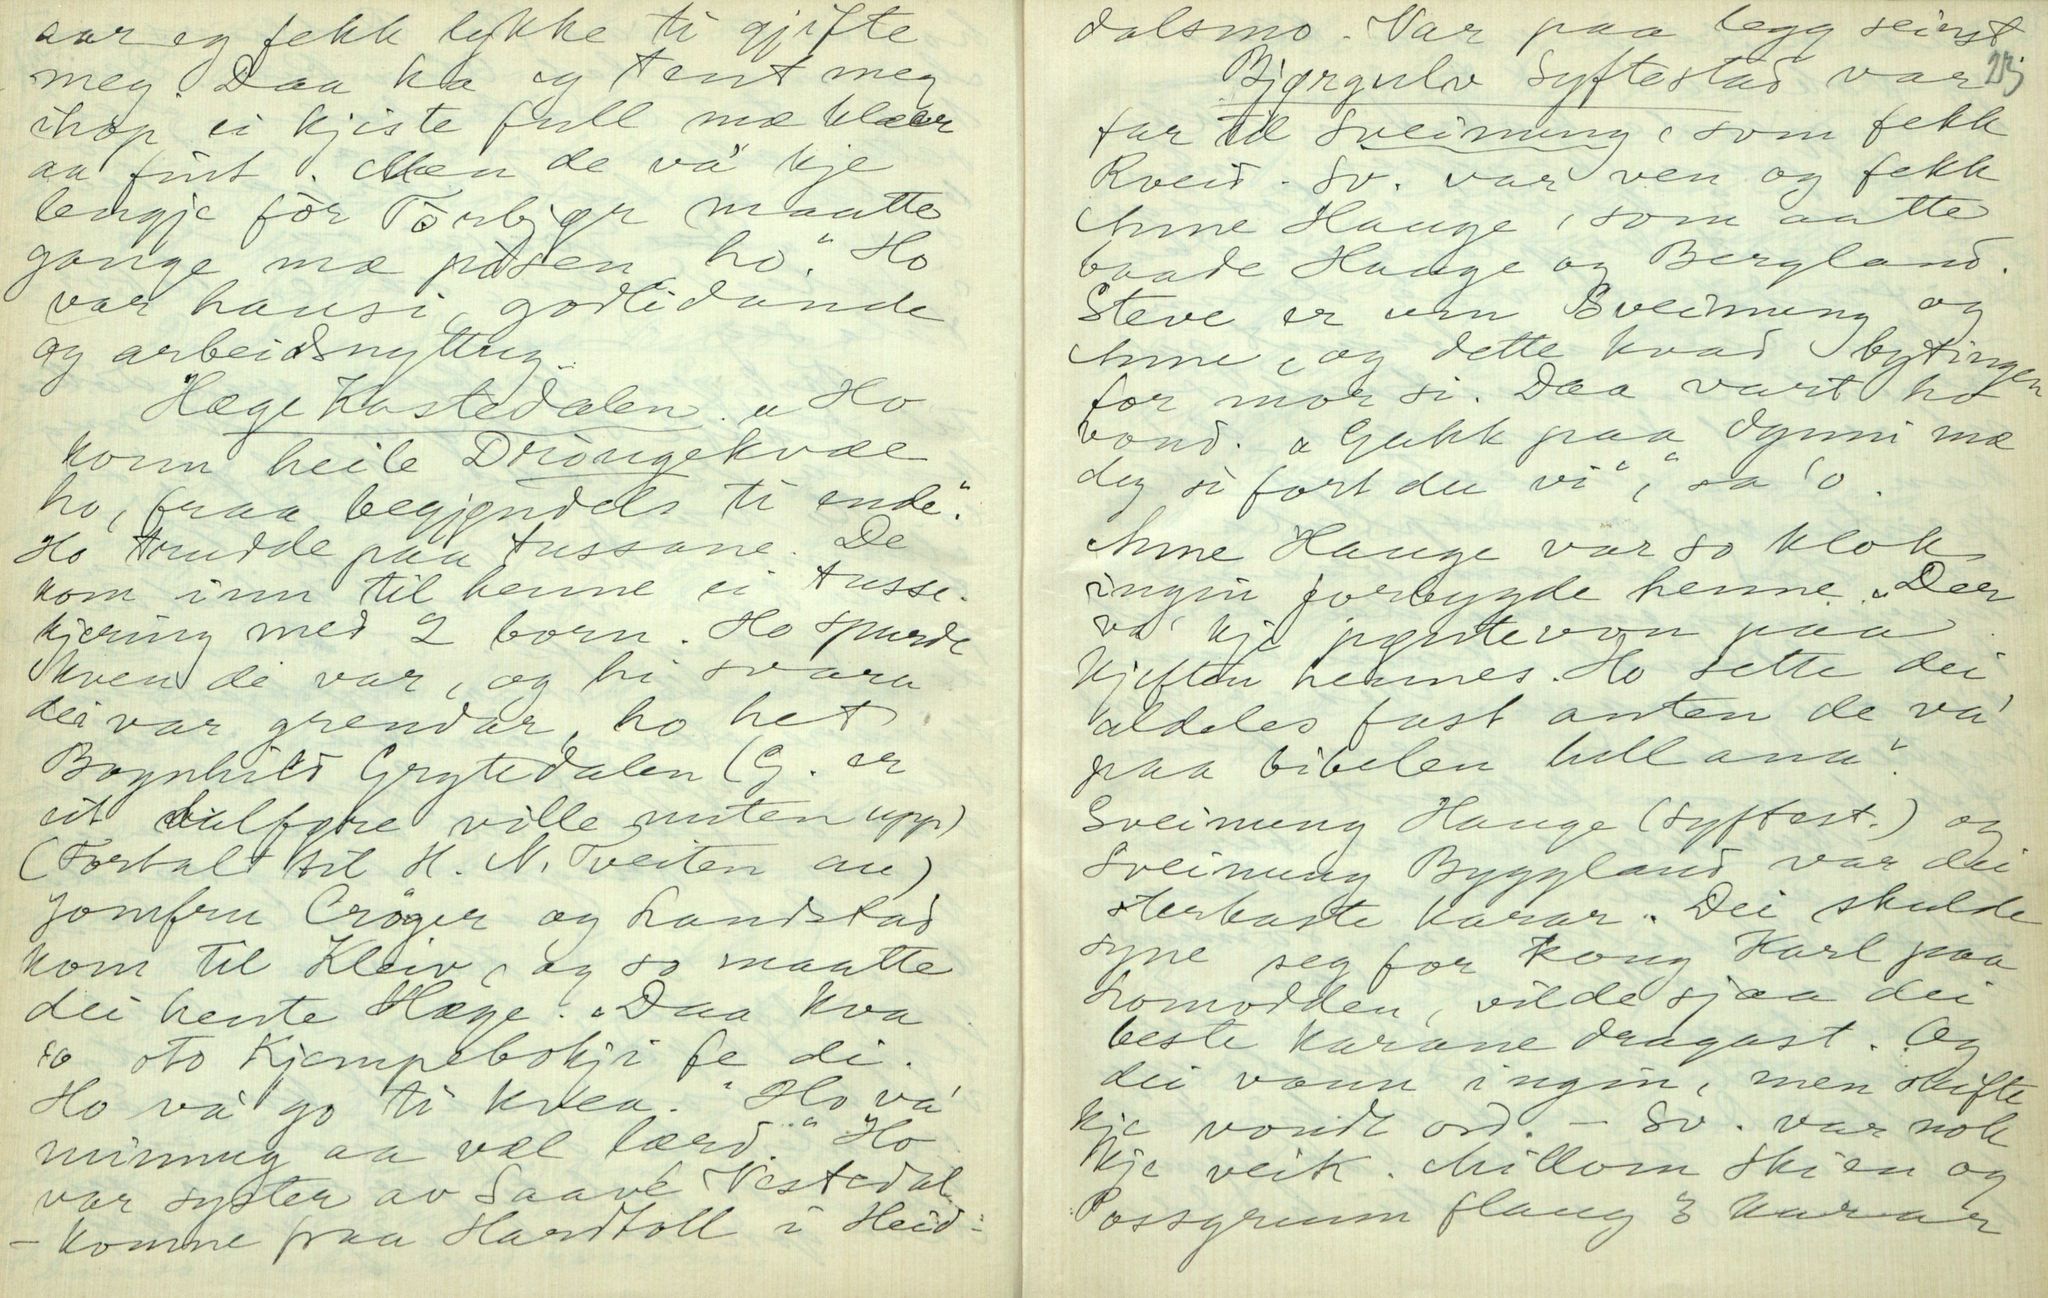 aar eg fekk lykke ti gjifte
meg. Daa ha eg tent meg
ihop ei kjiste full mæ klæer
aa fint. Men de va kje
lengje før Torbjør maatte
gange mæ posen, ho." Ho
var hansi, godlidande
og arbeidsnyttug.
Hæge Kastedalen. "Ho
konn heile Draugekvæe
ho, fraa begjyndels ti ende".
Ho trudde paa tussane. De
kom inn til henne ei tusse-
kjering med 2 born. Ho spurde
kven de var, og hi svara
dei var grendar, ho het
Bagnhild Grytedalen (G. er
eit hulføre ville nuten upp)
(Fortalt til H. N. Tveiten au)
Jomfru Crøger og Landstad
kom til Kleiv, og so maatte
dei hente Hæge. "Daa kva
'o sto Kjempebokji fe di.
Ho va' go ti kvea." "Ho va'
minnug aa vel lærd." Ho
var syster av Saave Kastedal.
- komne fraa Hardtoll i Heid-
dalsmo. Var paa legg seinst
23
Bjørgulv Syftestad var
far til Sveinung, som fekk
Kveid. Sv. var ven og fekk
Anne Hauge, som aatte
baade Hauge og Bergland.
Steve er um Sveinung og
Anne, og dette kvad bytingen
for mor si. Daa vart ho
vond. "Gakk paa dynni mæ
deg so fort du vi", sa 'o.
Anne Hauge var so klok
ingin forbygde henne. "Der
va' kje pøntevon paa
kjeften hennes. Ho sette dei
aldeles fast anten de va'
paa bibelen hell ana".
Sveinung Hauge (Syftest.) og
Sveinung Byggland var dei
sterkaste karar. Dei skulde
syne seg for kong Karl paa
Lomodden, vilde sjaa dei
beste karane dragast. Og
dei vann ingin, men skifte
kje vondt ord. - Sv. var nok
kje veik. Millom Skien og
Possgrunn flaug 3 karar